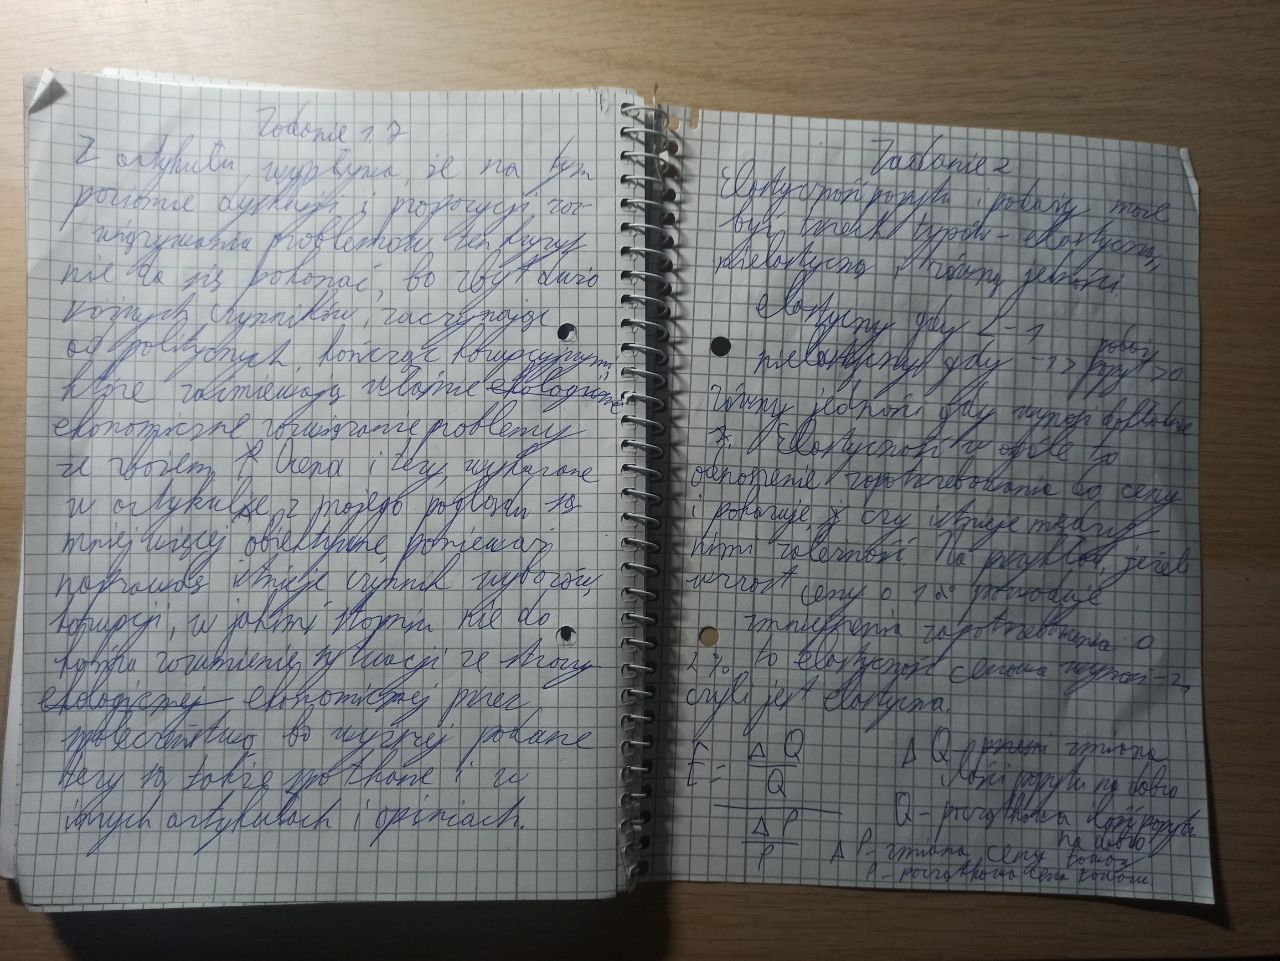 Zadanie 1.7
Z artykułu wypływa, że na tym
poziomie dyskusji i propozycji roz-
wiązywania problemów ten kryzys
nie da się pokonać, bo zbyt dużo
różnych czynników, zaczynając
od politycznych kończąc korupcyjnymi,
które zaśmiewają właśnie ekologiczne
ekonomiczne rozwiązanie problemy
ze swoiem. Ocena i tezy wykazane
w artykule z mojego poglądu są
mniej więcej obiektywne ponieważ
naprawdę istnieje czynnik wyborów,
korupcji, w jakimś stopniu nie do
końca rozumienie sytuacji ze strony
ekologicznej ekonomicznej przez
społeczeństwo bo wyżej podane
tezy są także spotkane i w
innych artykułach i opiniach.
Zadanie 2
Elastyczność popytu i podaży może
być trzech typów - elastyczną,
nielastyczną i równą jedności.
elastyczny gdy < -1
nielastyczny gdy -1 > popyt > 0
podaż
równy jedności gdy wynosi dokładnie
1. Elastyczność w ogóle to
odnoszenie zapotrzebowania do ceny
i pokazuje czy istnieje między
nimi zależność. Na przykład, jeżeli
wzrost ceny o 1% powoduje
zmniejszenia zapotrzebowania o
2%, to elastyczność cenowa wynosi -2,
czyli jest elastyczna.
E = ΔQ/Q / ΔP/P
ΔQ - zmiana
ilości popytu na dobro
Q - początkowa ilość popytu
na dobro
ΔP - zmiana ceny
P - początkowa cena